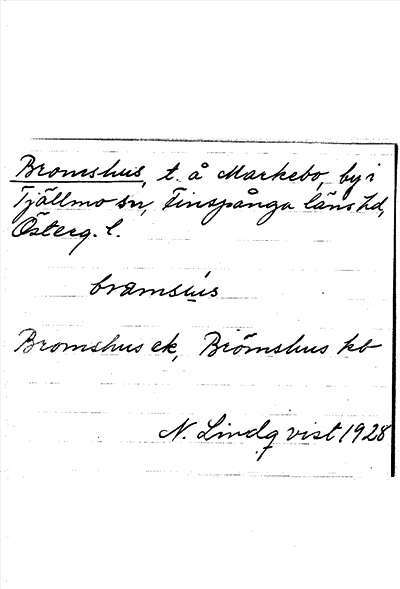 Bromshus, t. å Markebo, by i
Tjällmo sn, Finspånga läns hd,
Österg. l.
bramsús
Bromshus ek, Brömshus kb
N. Lindqvist 1928